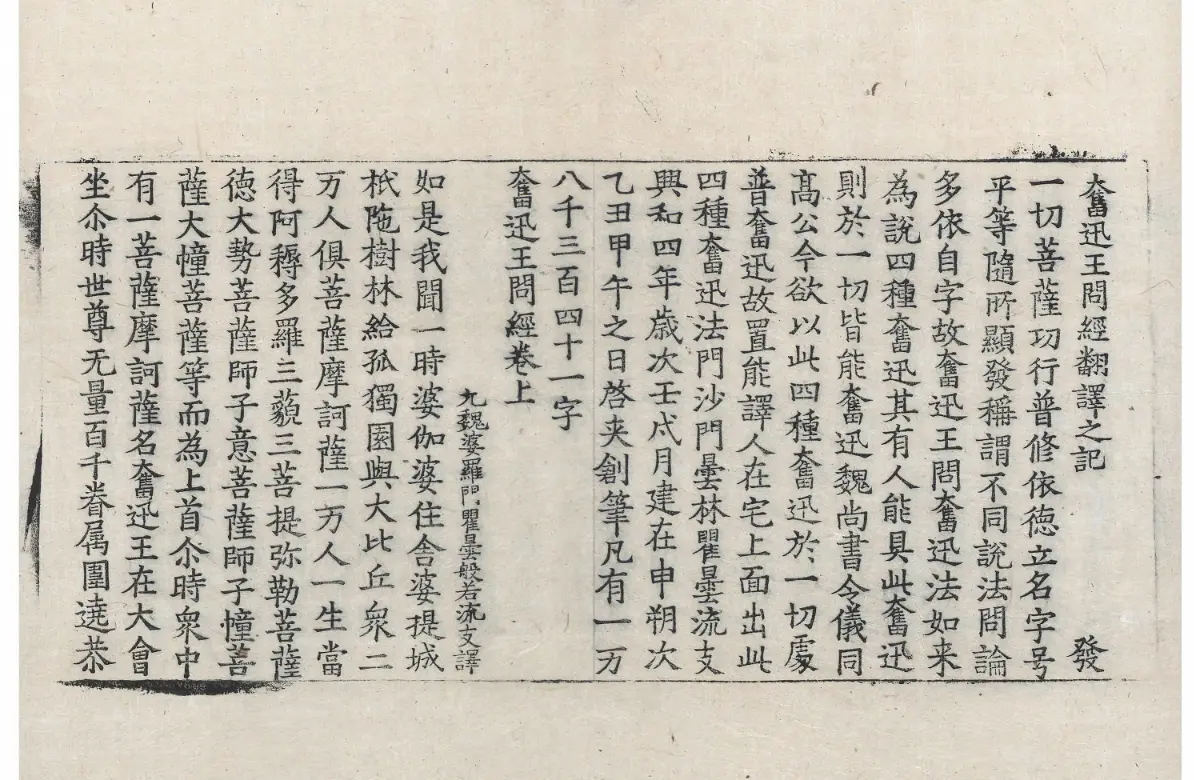 奮迅王問經翻譯之記 發
一切菩薩功行普修依德立名字号
平等隨所顯發稱謂不同說法問論
多依自字故奮迅王問奮迅法如来
為說四種奮迅其有人能具此奮迅
則於一切皆能奮迅魏尚書令儀同
髙公今欲以此四種奮迅於一切處
普奮迅故置能譯人在宅上面出此
四種奮迅法門沙門曇林瞿曇流支
興和四年歲次壬戌月建在申朔次
乙丑甲午之日啓夾創筆凡有一万
八千三百四十一字
奮迅王問經卷上
元魏婆羅門瞿曇般若流支譯
如是我聞一時婆伽婆住舍婆提城
祇陁樹林給孤獨園與大比丘衆二
万人俱菩薩摩訶薩一万人一生當
得阿耨多羅三藐三菩提弥勒菩薩
德大勢菩薩師子意菩薩師子憧菩
薩大憧菩薩等而為上首尒時衆中
有一菩薩摩訶薩名奮迅王在大會
坐尒時世尊无量百千眷属圍遶恭